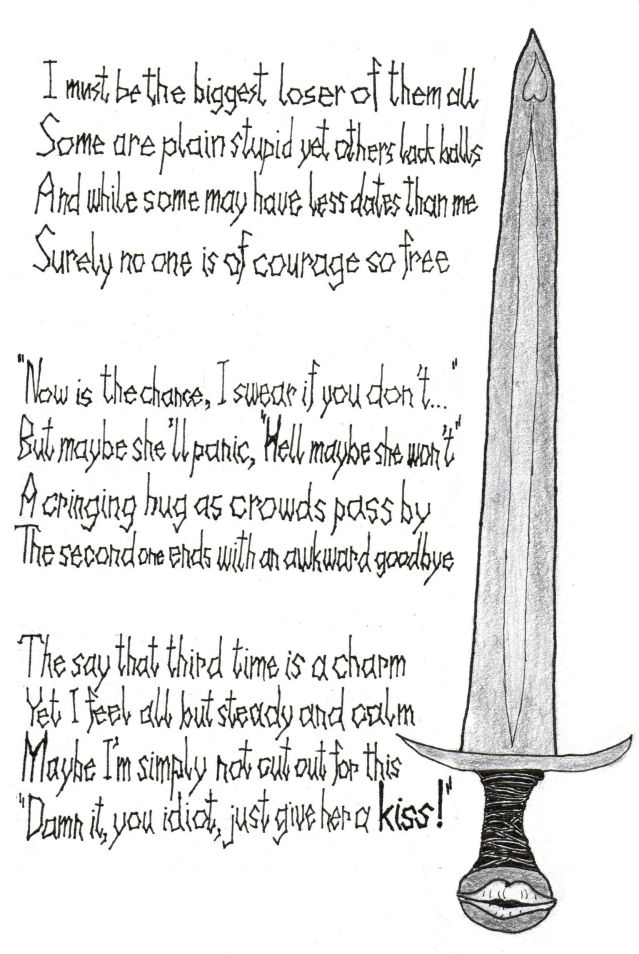 I must be the biggest loser of them all
Some are plain stupid yet others lack balls
And while some may have less dates than me
Surely no one is of courage so free
"Now is the chance, I swear if you don't..."
But maybe she'll panic, "Hell maybe she won't"
A cringing hug as crowds pass by
The second one ends with an awkward goodbye
The say that third time is a charm
Yet I feel all but steady and calm
Maybe I'm simply not cut out for this
"Damn it, you idiot, just give her a kiss!"